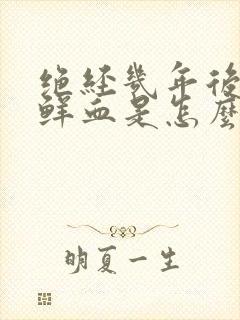 绝经几年后
鲜血是怎麼
明夏一生